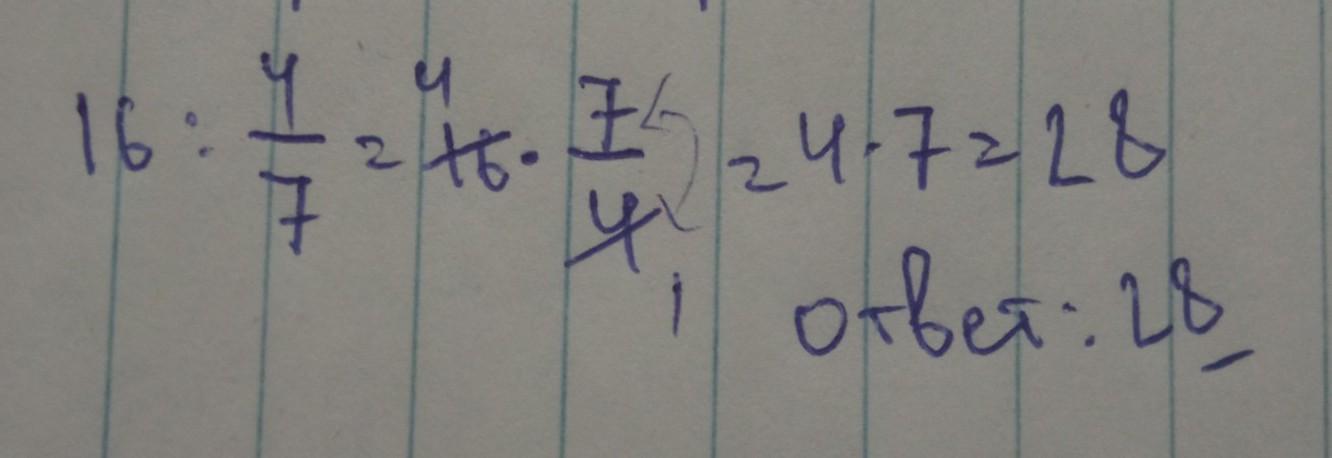 16 : 4/7 = 16 4 · 7/4 1 = 4 · 7 = 28
ответ: 28